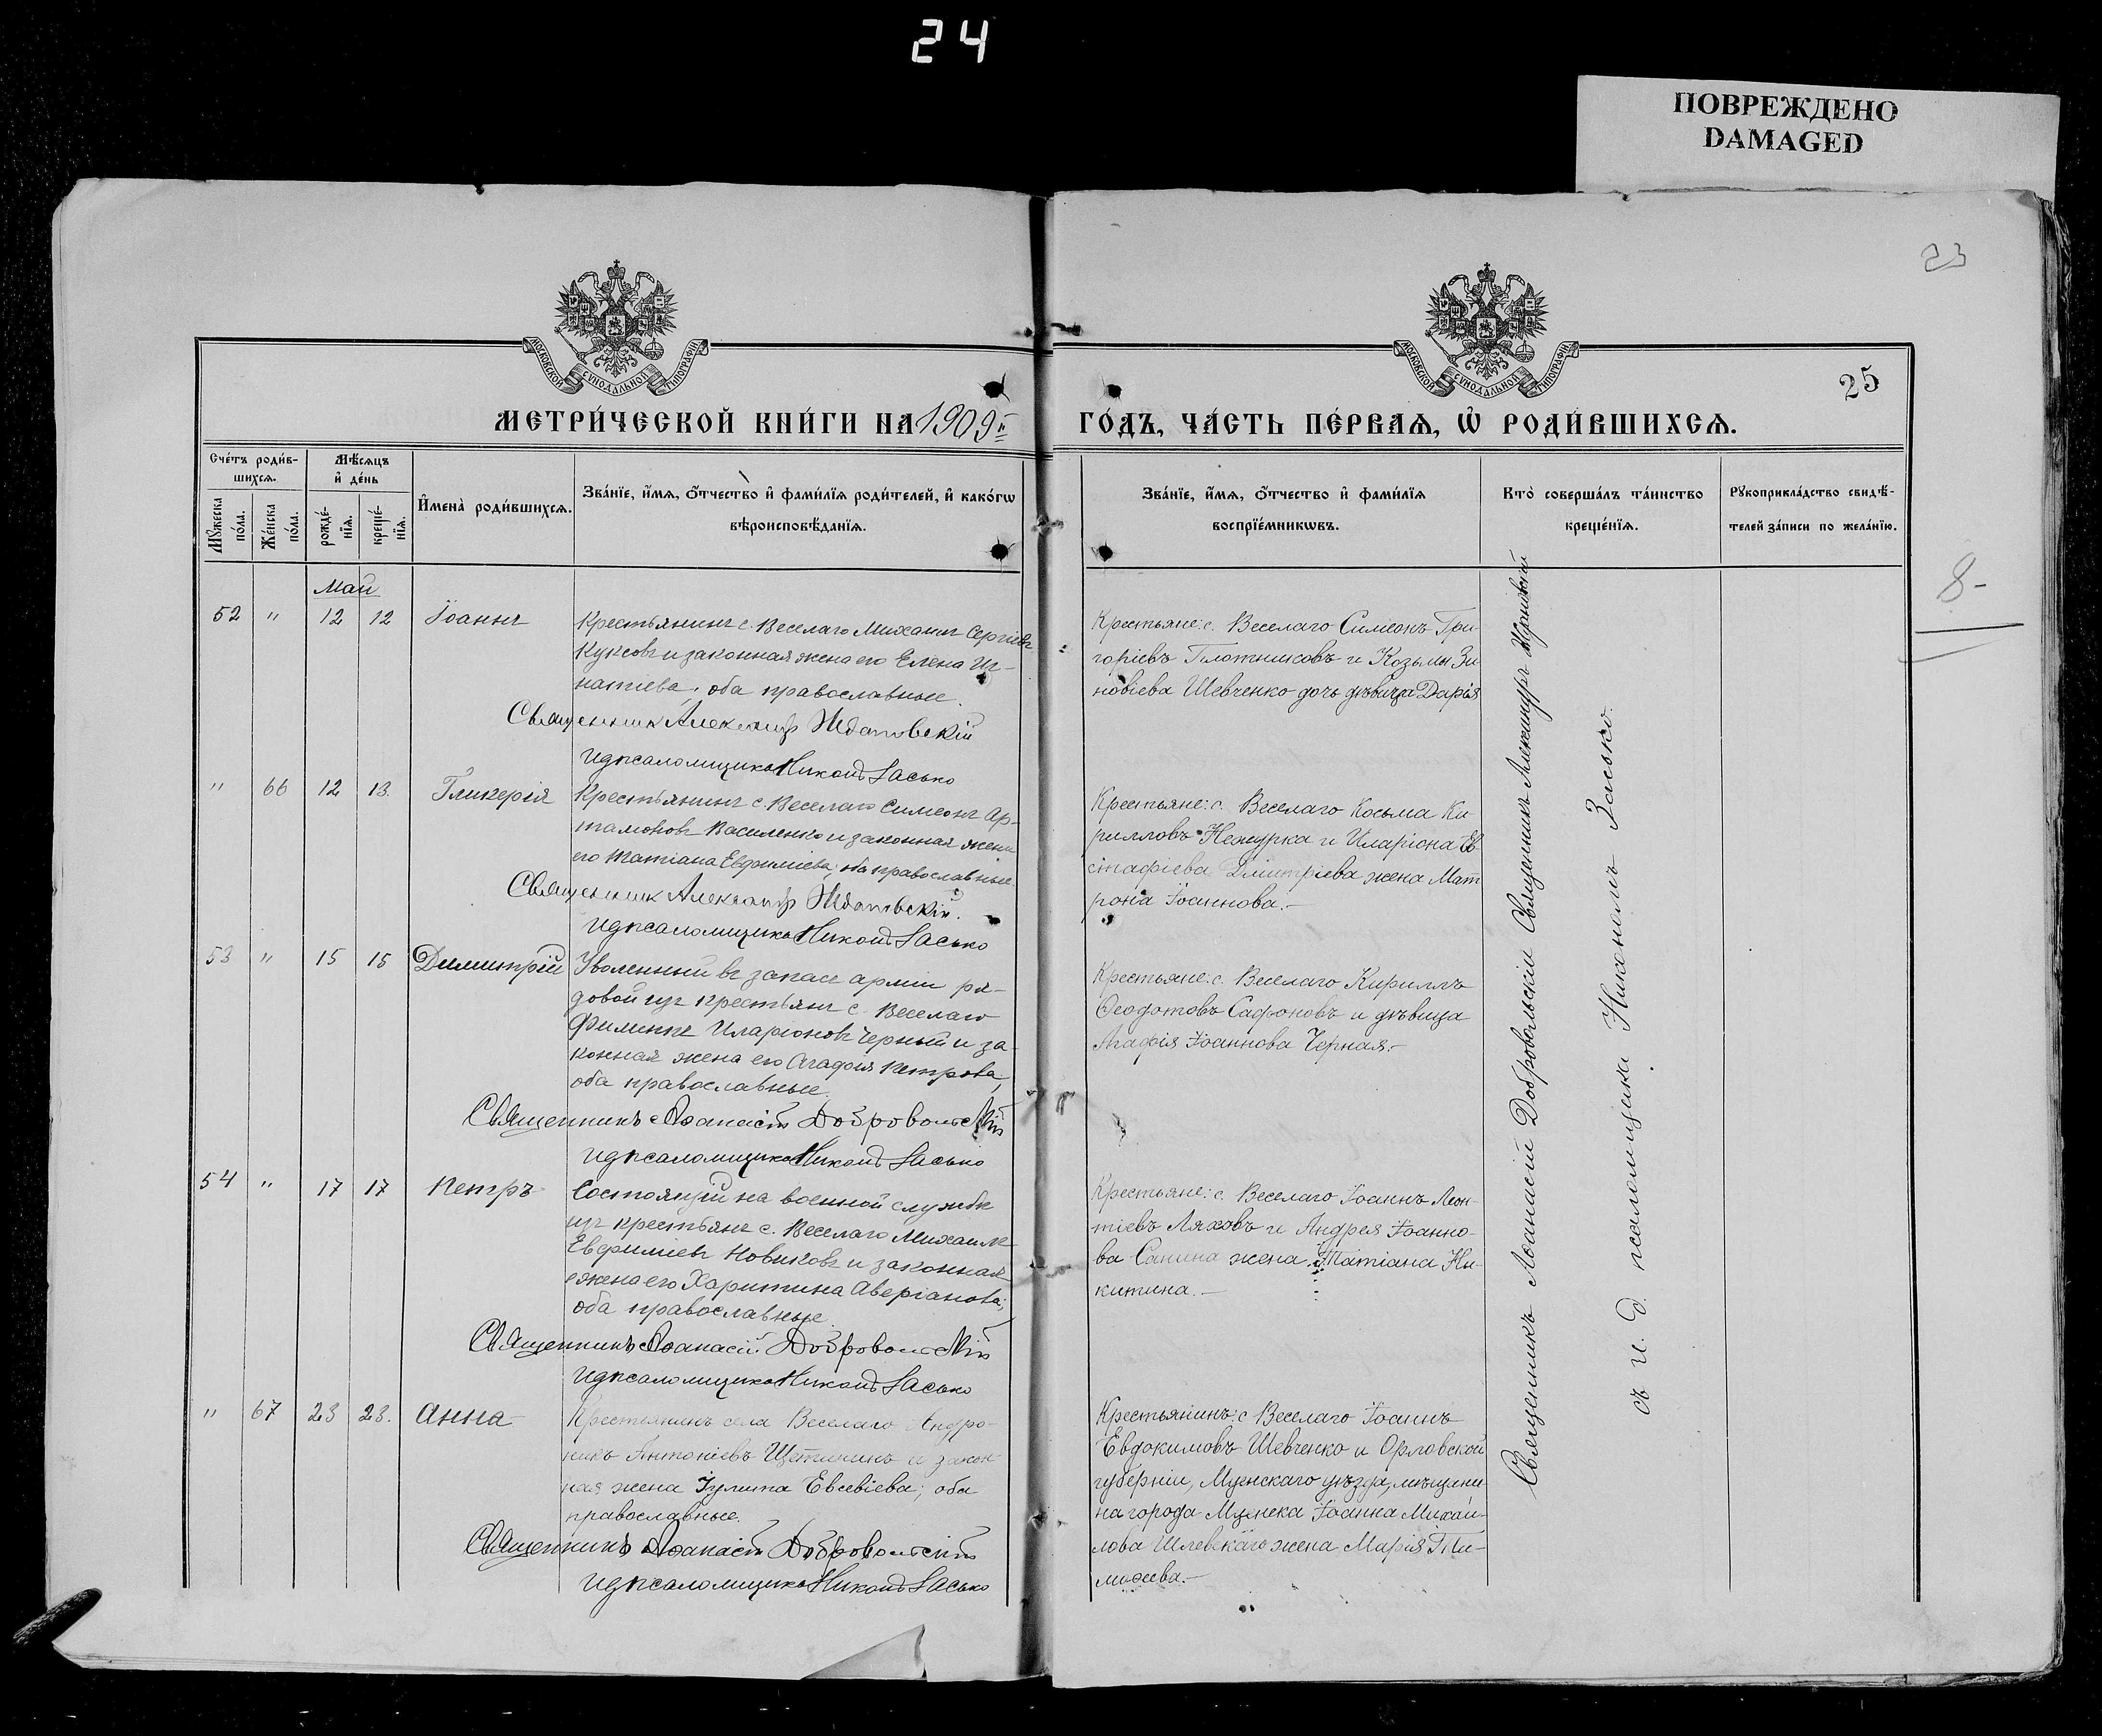 24
ПОВРЕЖДЕНО
DAMAGED
23
25
МОСКОВСКОЙ СѴНОДАЛЬНОЙ ТИПОГРАФІИ
МОСКОВСКОЙ СѴНОДАЛЬНОЙ ТИПОГРАФІИ
МЕТРИ́ЧЕСКОЙ КНИ́ГИ НА 1909й
ГО́ДЪ, ЧА́СТЬ ПЕ́РВАѦ, Ѡ҆ РОДИ́ВШИХСѦ.
Сче́тъ роди́в-
шихсѧ.
Мѣ́сѧцъ
и҆ де́нь
Мꙋ́жеска
по́ла.
Же́нска
по́ла.
рожде́-
нїѧ.
креще́-
нїѧ.
И҆мена̀ роди́вшихсѧ.
Зва́нїе, и҆́мѧ, ѻ҆́тчество и҆ фами́лїѧ роди́телей, и҆ како́гѡ
вѣроисповѣ́данїѧ.
Зва́нїе, и҆́мѧ, ѻ҆́тчество и҆ фами́лїѧ
воспрїе́мникѡвъ.
Кто̀ соверша́лъ та́инство
креще́нїѧ.
Рꙋкоприкла́дство свидѣ́-
телей за́писи по жела́нїю.
8-
Май
52 " 12 12 Іоаннъ
Крестьянинъ с. Веселаго Михаилъ Сергіевъ
Куксовъ и законная жена его Елена Иг-
натіева, оба православные.
Священник Александр Ждановскій
и д псаломщика Никонъ Засько
Крестьяне: с. Веселаго Симеонъ Гри-
горіевъ Плотниковъ и Козьмы Зи
новіева Шевченко дочь дѣвица Дарія
" 66 12 13. Гликерія
Крестьянинъ с. Веселаго Симеонъ Ар-
тамоновъ Василенко и законная жена
его Татіана Евфиміева; оба православные.
Священник Александр Ждановскій.
и д псаломщика Никонъ Засько
Крестьяне: с. Веселаго Косьма Ки-
рилловъ Нежурка и Иларіона Ев-
стафіева Димитріева жена Мат
рона Іоаннова.-
53 " 15 15 Димитрій
Уволенный въ запас арміи ря-
довой изъ крестьянъ с. Веселаго
Филиппъ Иларіоновъ Черный и за-
конная жена его Агафія Петрова,
оба православные.
Священникъ Аѳанасій Добровольскій
и д псаломщика Никонъ Засько
Крестьяне: с. Веселаго Кириллъ
Ѳеодотовъ Сафоновъ и дѣвица
Агафія Іоаннова Черная.-
54 " 17 17 Петръ
Состоящій на военной службѣ
изъ крестьянъ с. Веселаго Михаилъ
Евфиміевъ Новиковъ и законная
жена его Харитина Аверіанова;
оба православные.
Священникъ Аѳанасій Добровольскій
и д псаломщика Никонъ Засько
Крестьяне: с. Веселаго Іоаннъ Леон-
тіевъ Ляховъ и Андрея Іоанно-
ва Санина жена Татіана Ни-
китина.-
" 67 23 23. Анна
Крестьянинъ села Веселаго Андро-
никъ Антоніевъ Щетининъ и закон
ная жена Іулита Евсевіева; оба
православные.
Священникъ Аѳанасій Добровольскій
и д псаломщика Никонъ Засько
Крестьянинъ: с Веселаго Іоаннъ
Евдокимовъ Шевченко и Орловской
губерніи, Мценскаго уѣзда, мѣщани-
на города Мценска Іоанна Михаи-
лова жена Марія Ти-
моѳеева.-
Священникъ Аѳанасій Добровольскій Священникъ Александръ Ждановскій
съ и. д. псаломщика Никономъ Засько.